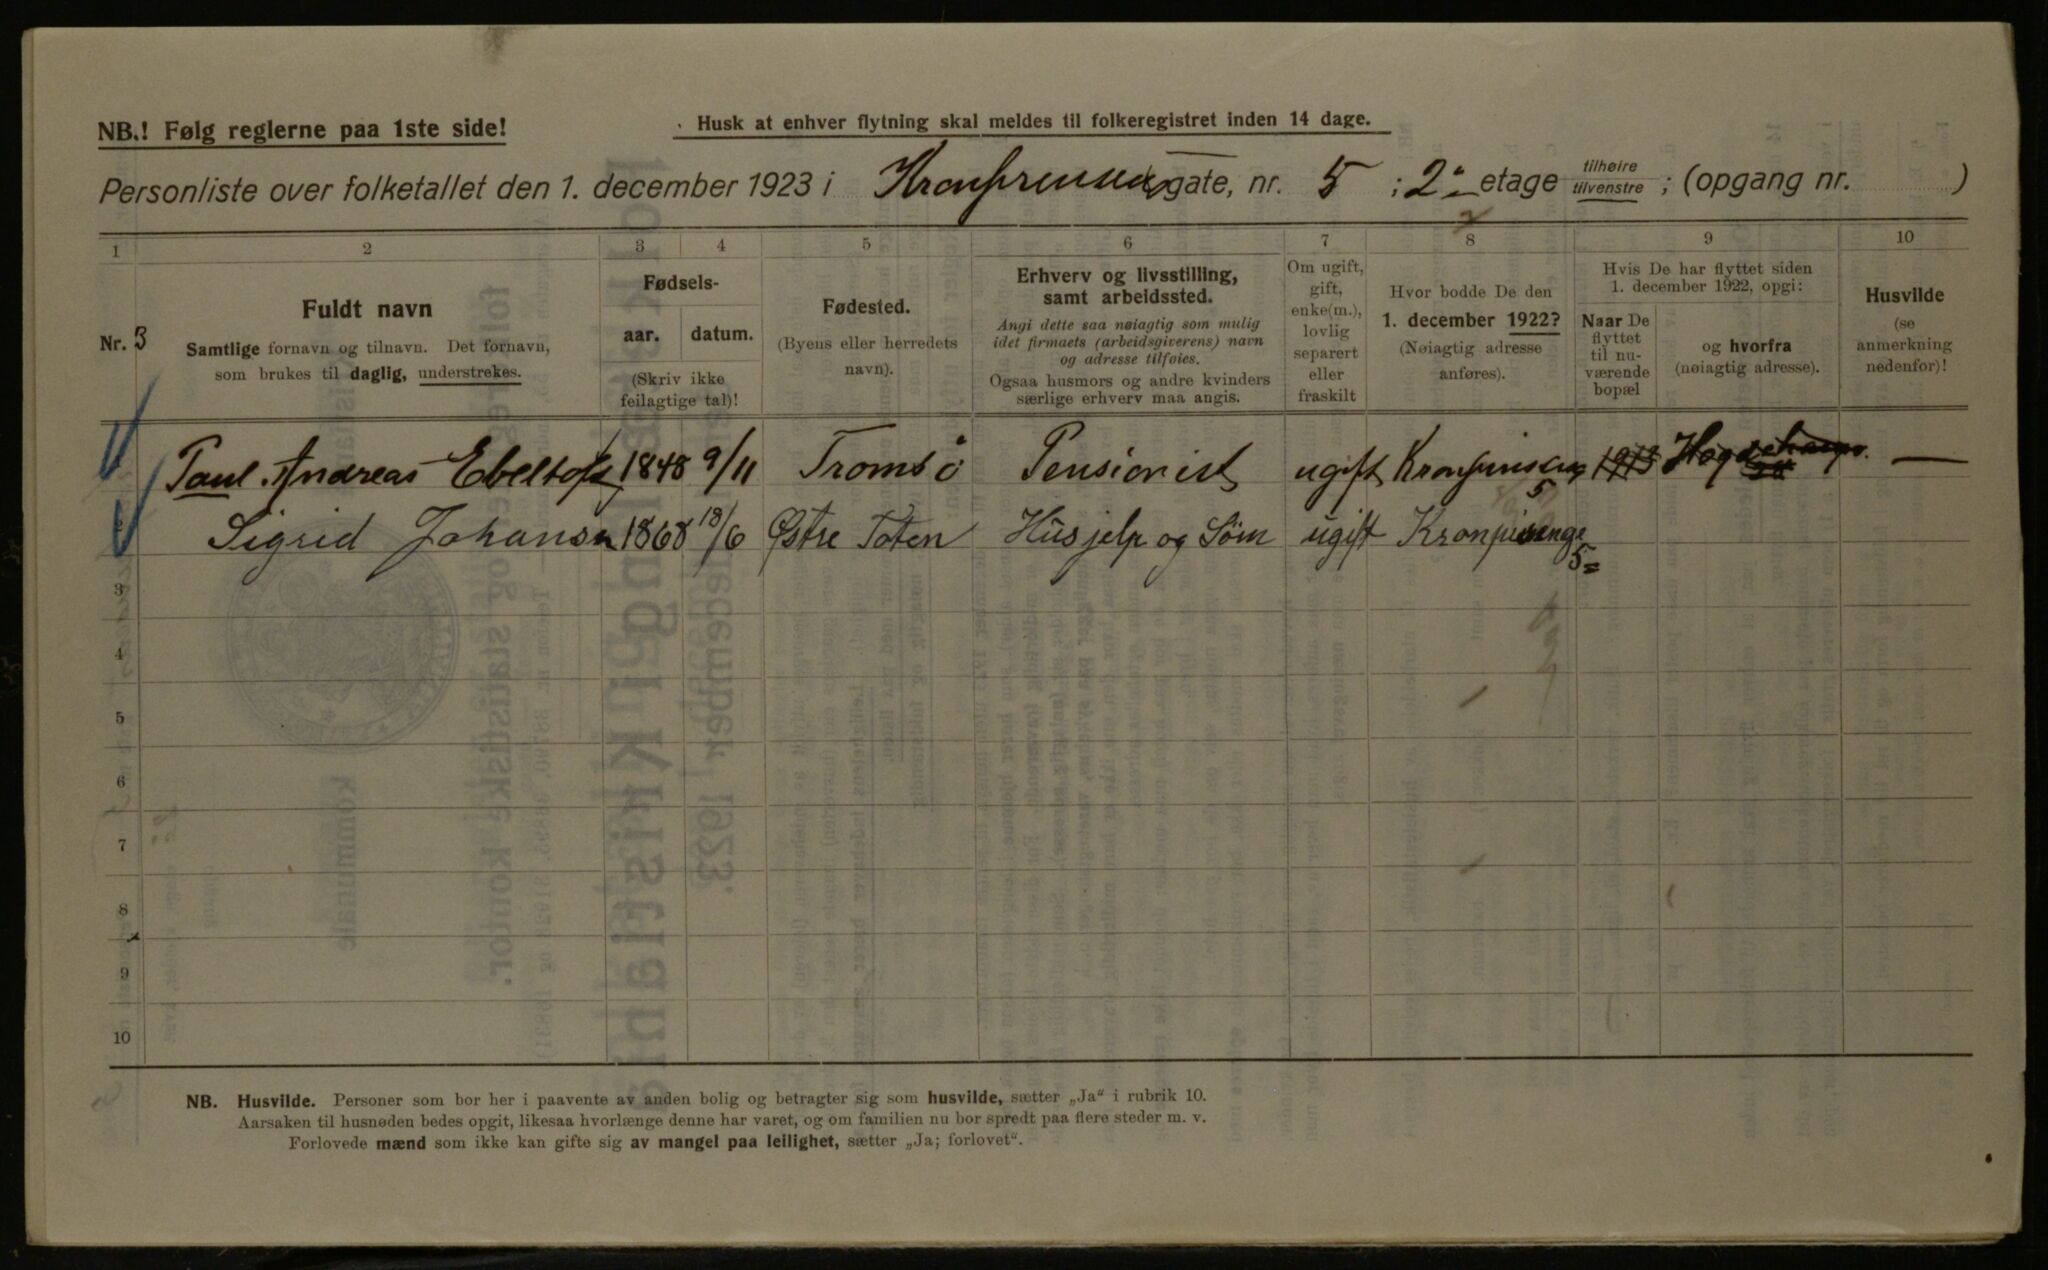 NB.! Følg reglerne paa 1ste side!
Husk at enhver flytning skal meldes til folkeregistret inden 14 dage.
Personliste over folketallet den 1. december 1923 i Kronprinsens gate, nr. 5 ; 2. etage tilhøire tilvenstre ; (opgang nr. )
1 2 3 4 5 6 7 8 9 10
Nr. 3
Fuldt navn
Samtlige fornavn og tilnavn. Det fornavn,
som brukes til daglig, understrekes.
Fødsels-
aar. datum.
(Skriv ikke
feilagtige tal)!
Fødested.
(Byens eller herredets
navn).
Erhverv og livsstilling,
samt arbeidssted.
Angi dette saa nøiagtig som mulig
idet firmaets (arbeidsgiverens) navn
og adresse tilføies.
Ogsaa husmors og andre kvinders
særlige erhverv maa angis.
Om ugift,
gift,
enke(m.),
lovlig
separert
eller
fraskilt
Hvor bodde De den
1. december 1922?
(Nøiagtig adresse
anføres).
Hvis De har flyttet siden
1. december 1922, opgi:
Naar De
flyttet
til nu-
værende
bopæl
og hvorfra
(nøiagtig adresse).
Husvilde
(se
anmerkning
nedenfor)!
Paul Andreas Ebeltoft 1848 9/11 Tromsö Pensionist ugift Kronprinsens 5 1913 —
Sigrid Johansen 1868 18/6 Østre Toten Husjelp og Søm ugift Kronprinsensg 5
3
4
5
6
7
8
9
10
NB. Husvilde. Personer som bor her i paavente av anden bolig og betragter sig som husvilde, sætter „Ja“ i rubrik 10.
Aarsaken til husnøden bedes opgit, likesaa hvorlænge denne har varet, og om familien nu bor spredt paa flere steder m. v.
Forlovede mænd som ikke kan gifte sig av mangel paa leilighet, sætter „Ja; forlovet“.